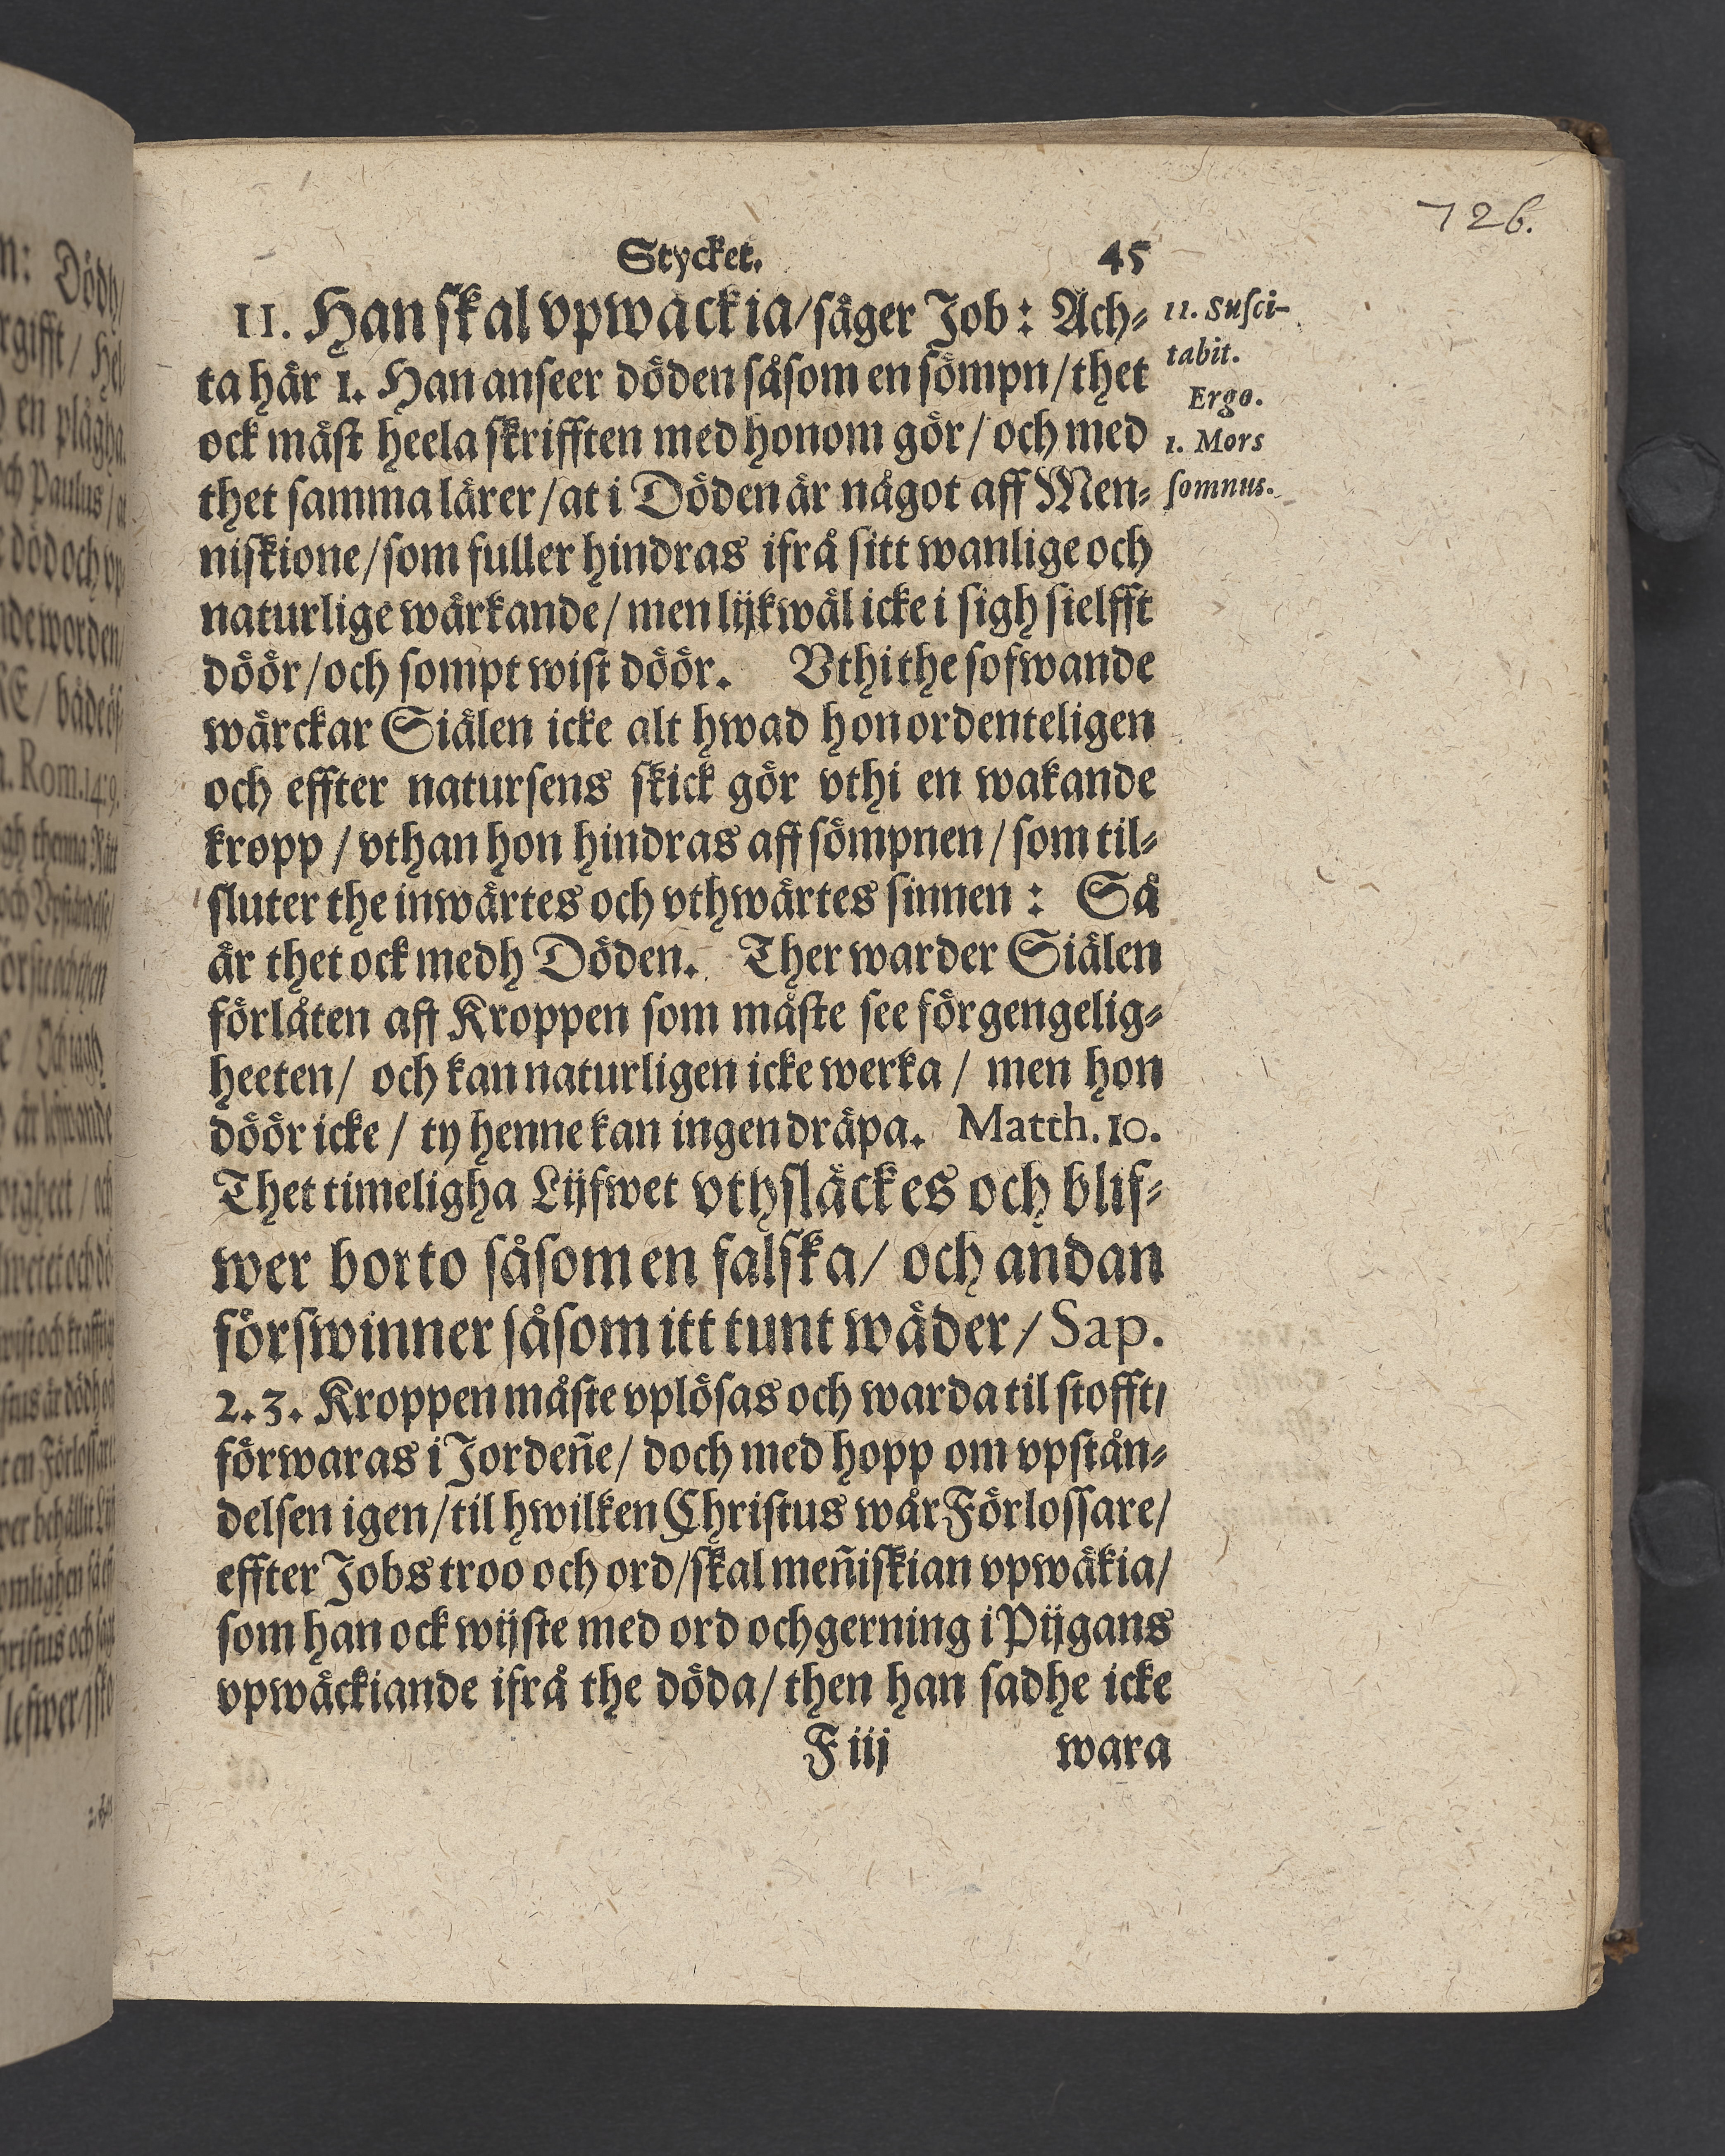 726.
Stycket. 45
II. Han skal vpwäckia/säger Job: Ach-
ta här 1. Han anseer döden såsom en sömpn/thet
ock mäst heela skrifften med honom gör/och med
thet samma lärer/at i Döden är något aff Men-
niskione/som fuller hindras ifrå sitt wanlige och
naturlige wärkande/men lijkwäl icke i sigh sielfft
döör/och sompt wist döör. Vthi the sofwande
wärckar Siälen icke alt hwad hon ordenteligen
och effter natursens skick gör vthi en wakande
kropp/vthan hon hindras aff sömpnen/som til-
sluter the inwärtes och vthwärtes sinnen: Så
är thet ock medh Döden. Ther warder Siälen
förlåten aff Kroppen som måste see förgengelig-
heeten/ och kan naturligen icke werka/ men hon
döör icke/ ty henne kan ingen dräpa. Matth. 10.
Thet timeligha Lijfwet vthsläckes och blif-
wer borto såsom en falska/ och andan
förswinner såsom itt tunt wäder/Sap.
2.3. Kroppen måste vplösas och warda til stofft/
förwaras i Jordeñe/ doch med hopp om vpstån-
delsen igen/til hwilken Christus wår Förlossare/
effter Jobs troo och ord/skal meñiskian vpwäkia/
som han ock wijste med ord och gerning i Pijgans
vpwäckiande ifrå the döda/then han sadhe icke
F iij wara
11. Susci-
tabit.
Ergo.
1. Mors
somnus.